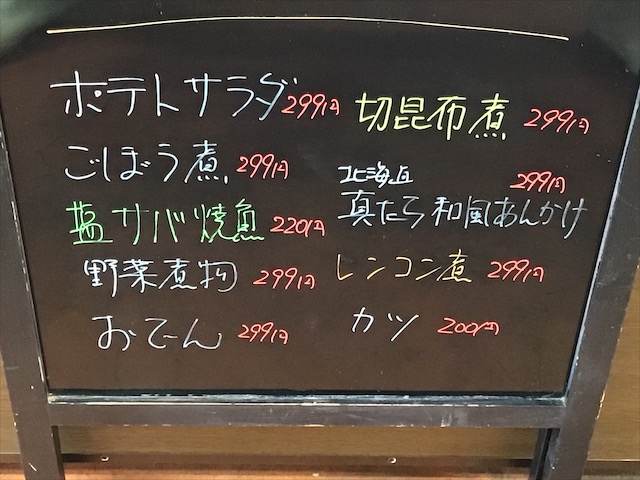 ポテトサラダ 299円
ごぼう煮 299円
塩サバ焼魚 220円
野菜煮物 299円
おでん 299円
切昆布煮 299円
北海道 299円
真たら和風あんかけ
レンコン煮 299円
カツ 200円